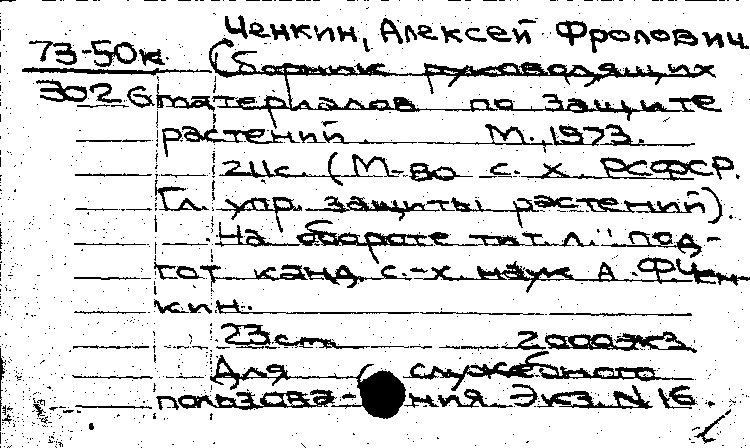 Ченкин, Алексей Фролович
73-50к (Сборник руководящих
302б материалов по защите
растений. М., 1973.
211с. (М-во с. х. РСФСР.
Гл. упр. защиты растений).
На обороте тит. л.: подгот
тот. канд. с.-х. наук А.Ф.Чен-
кин.
23см. 2000экз.
Для служебного
пользова-ния. Экз. N 16.